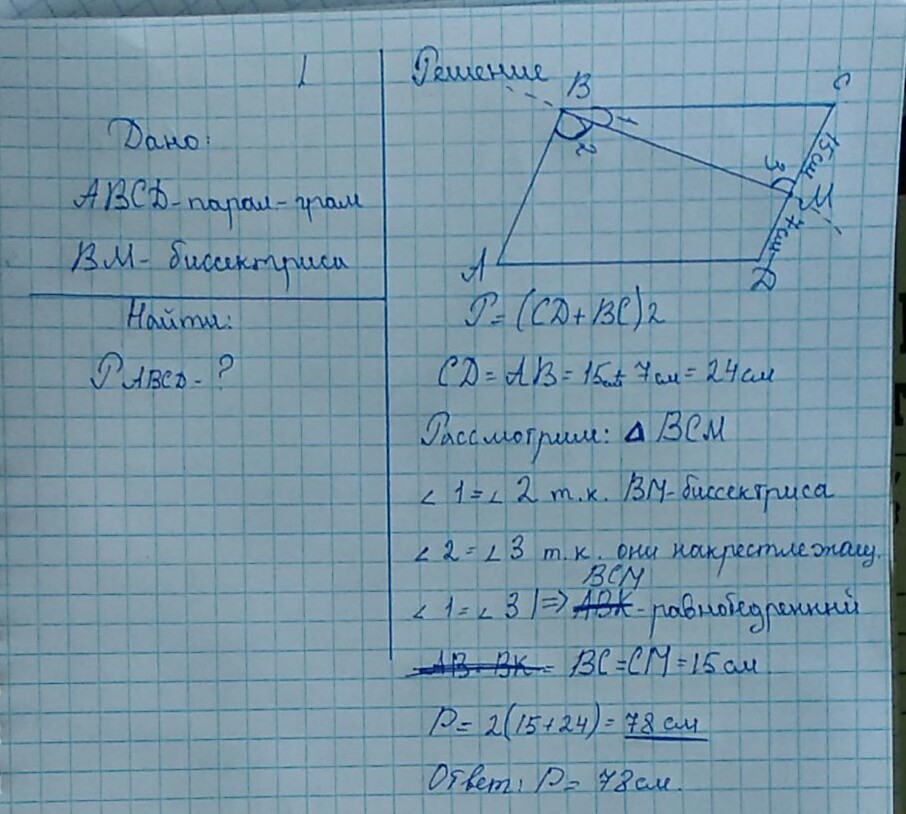 1
Дано:
ABCD - парал-грам
BM - биссектриса
Найти:
PABCD - ?
Решение
B
C
1
2
3
15см
M
7см
A
D
P = (CD + BC) 2
CD = AB = 15см + 7см = 24см
Рассмотрим: Δ BCM
∠1 = ∠2 т.к. BM - биссектриса
∠2 = ∠3 т.к. они накрест лежащ.
BCM
∠1 = ∠3 | => ABK - равнобедренний
AB = BK = BC = CM = 15см
P = 2(15+24) = 78 см
Ответ: P = 78см.